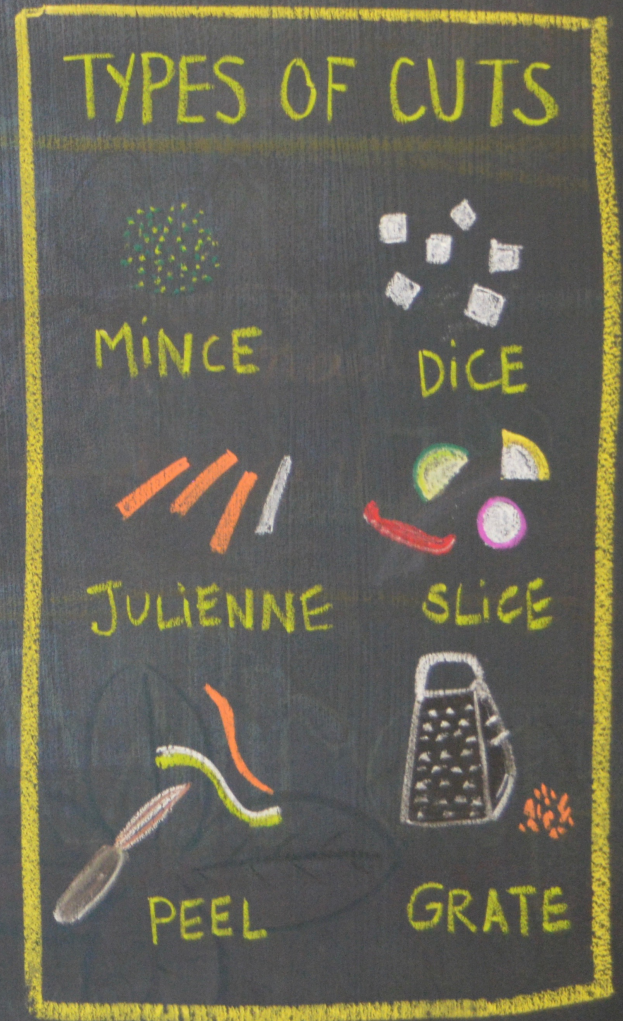 TYPES OF CUTS
MiNCE
DiCE
JULiENNE
SLiCE
PEEL
GRATE